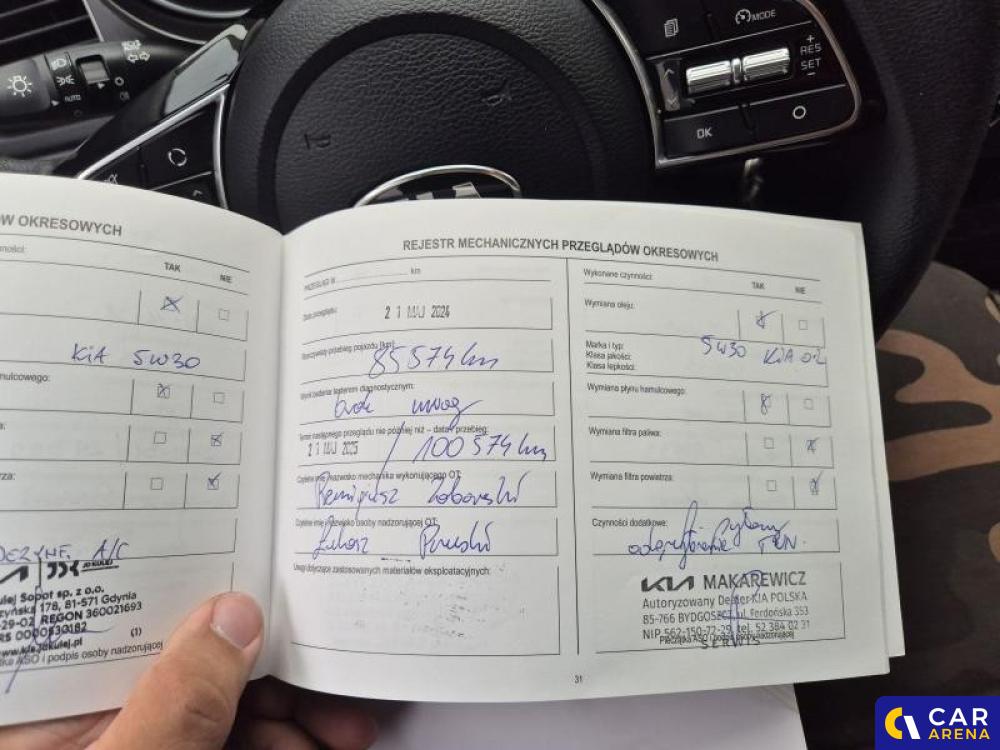 MODE
+
RES
SET
-
OK
AUTO
W OKRESOWYCH
TAK
NIE
KIA 5W30
A/C
Sopot sp. z o.o.
178, 81-571 Gdynia
REGON 360021693
(1)
i podpis osoby nadzorującej
REJESTR MECHANICZNYCH PRZEGLĄDÓW OKRESOWYCH
PRZEGLĄD W km
Data przeglądu:
21 MAJ 2024
Rzeczywisty przebieg pojazdu [km]:
85574 km
Wynik badania testerem diagnostycznym:
brak uwag
Termin następnego przeglądu nie później niż – data / przebieg:
21 MAJ 2025 / 100574 km
Czytelne imię i nazwisko mechanika wykonującego OT:
Remigiusz
Czytelne imię i nazwisko osoby nadzorującej OT:
Łukasz
Uwagi dotyczące zastosowanych materiałów eksploatacyjnych:
Wykonane czynności:
TAK
NIE
Wymiana oleju:
Marka i typ:
Klasa jakości:
Klasa lepkości:
5W30 KIA
Wymiana płynu hamulcowego:
Wymiana filtra paliwa:
Wymiana filtra powietrza:
Czynności dodatkowe:
KIA MAKAREWICZ
Autoryzowany Dealer KIA POLSKA
85-766 BYDGOSZCZ, ul. Fordońska 353
NIP 562-150-72-29, tel. 52 384 02 31
Pieczątka ASO i podpis osoby nadzorującej
SERWIS
31
CAR
ARENA